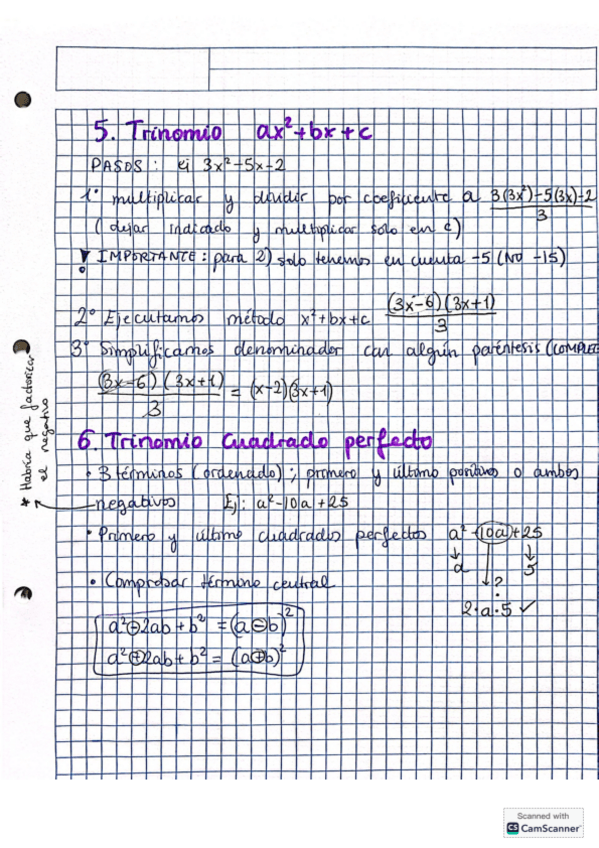 5. Trinomio ax²+bx+c
PASOS: ej 3x²-5x-2
1º multiplicar y dividir por coeficiente a 3(3x²)-5(3x)-2
3
(dejar indicado y multiplicar solo en c)
! IMPORTANTE: para 2) solo tenemos en cuenta -5 (NO -15)
2º Ejecutamos método x²+bx+c (3x-6)(3x+1)
3
3º Simplificamos denominador con algún paréntesis (COMPLE
(3x-6)(3x+1) = (x-2)(3x+1)
3
6. Trinomio Cuadrado perfecto
• 3 términos (ordenado); primero y último positivos o ambos
negativos Ej: a²-10a+25
* Habría que factorizar
el negativo
• Primero y último cuadrados perfectos a²-10a+25
a 5
• Comprobar término central ?
2·a·5 ✓
a²-2ab+b² = (a-b)²
a²+2ab+b² = (a+b)²
Scanned with
CS CamScanner